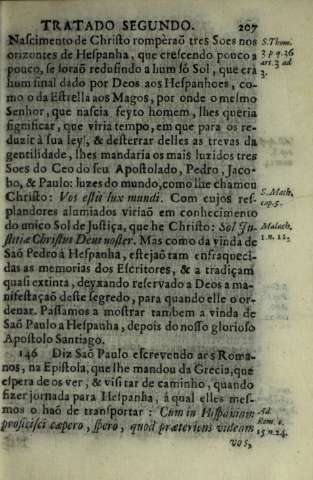 TRATADO SEGUNDO. 207
Nascimento de Christo rompèraõ tres Soes nos
orizontes de Hespanha, que crescendo pouco a
pouco, se foraõ redusindo a hum só Sol, que era
hum sinal dado por Deos aos Hespanhoes, co-
mo o da Estrella aos Magos, por onde o mesmo
Senhor, que nascia feyto homem, lhes queria
significar, que viria tempo, em que para os re-
duzir à sua ley, & desterrar delles as trevas da
gentilidade, lhes mandaria os mais luzidos tres
Soes do Ceo do seu Apostolado, Pedro, Jaco-
bo, & Paulo: luzes do mundo, como lhe chamou
Christo: Vos estis lux mundi. Com cujos res-
plandores alumiados viriaõ em conhecimento
do unico Sol de Justiça, que he Christo: Sol Ju-
stitiæ Christus Deus noster. Mas como da vinda de
Saõ Pedro à Hespanha, estejaõ tam enfraqueci-
das as memorias dos Escritores, & a tradiçam
quasi extinta, deyxando reservado a Deos a ma-
nifestaçaõ deste segredo, para quando elle o or-
denar. Passamos a mostrar tambem a vinda de
Saõ Paulo a Hespanha, depois do nosso glorioso
Apostolo Santiago.
146 Diz Saõ Paulo escrevendo aos Roma-
nos, na Epistola, que lhe mandou da Grecia, que
espera de os ver, & visitar de caminho, quando
fizer jornada para Hespanha, à qual elles mes-
mos o haõ de transportar: Cum in Hispaniam
proficisci cæpero, spero, quod præteriens videam
vos,
S. Thom.
3 p. q. 36
art. 3 ad
3.
S. Math.
cap. 5.
Malach.
Ad
Rom. c.
15 n. 24.